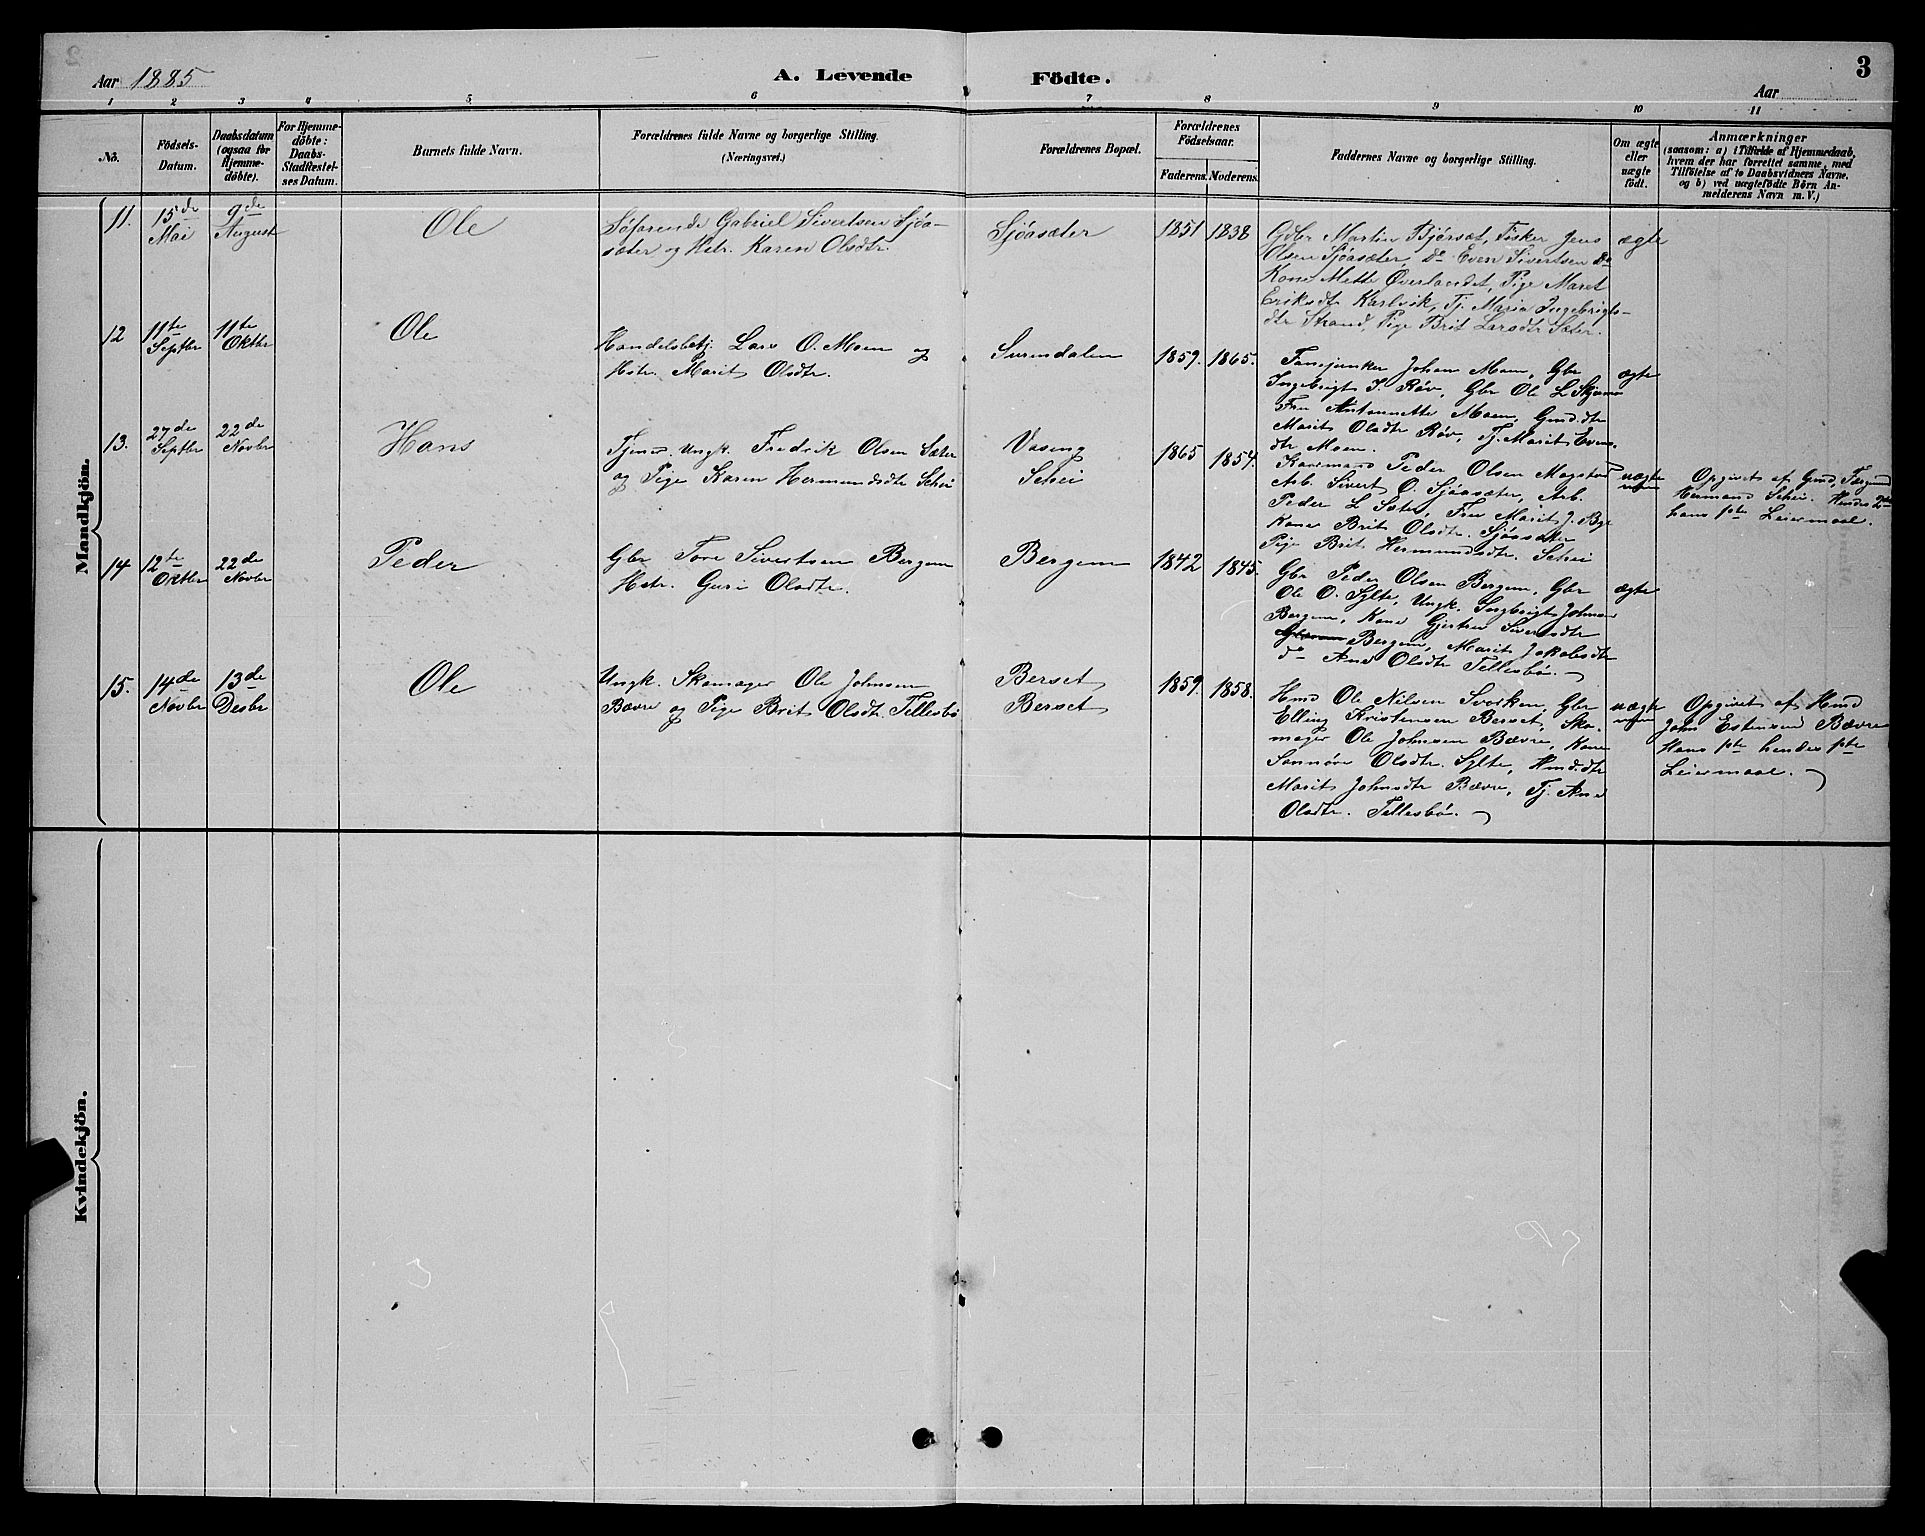 Aar 1885
A. Levende Födte.
3
Aar
1 2 3 4 5 6 7 8 9 10 11
No.
Födsels-
Datum.
Daabsdatum
(ogsaa for
Hjemme-
döbte).
For Hjemme-
döbte:
Daabs-
Stadfæstel-
ses Datum.
Barnets fulde Navn.
Forældrenes fulde Navne og borgerlige Stilling.
(Næringsvei.)
Forældrenes Bopæl.
Forældrenes
Födselsaar.
Faderens. Moderens.
Faddernes Navne og borgerlige Stilling.
Om ægte
eller
uægte
födt.
Anmærkninger
(saasom: a) i Tilfælde af Hjemmedaab,
hvem der har forrettet samme, med
Tilföielse af to Daabsvidners Navne,
og b) ved uægtefödte Börn An-
melderens Navn m. V.)
Mandkjön.
11. 15de Mai 9de August
Ole
Söfarende Gabriel Sivertsen Sjöa-
sæter og Hstr. Karen Olsdtr.
Sjöasæter
1851 1838
Gdbr Martin Björsæt, Fisker Jens
Olsen Sjöasæter, do Even Sivertsen do
Kone Mette Øverlandet, Pige Maret
Eriksdtr Karlvik, Tj. Maria Ingebrigts-
dtr Strand, Pige Brit Larsdtr Sæter.
ægte
12 11te Septbr 11te Oktbr
Ole
Handelsbetj. Lars O. Moen og
Hstr. Marit Olsdtr.
Surendalen
1859. 1865.
Fanejunker Johan Moen, Gbr
Ingebrigt J. Røv, Gbr Ole L Skjermo
Fru Antonnette Moen, Gmd.dtr
Marit Olsdtr Røv, Tj. Marit Evens-
dtr Moen.
ægte
13. 27de Septbr 22de Novbr
Hans
Tjener Ungk. Fredrik Olsen Sæter
og Pige Karen Hermundsdtr Schei
Vaseng
Schei
1865 1854.
Peder Olsen
Arb. Sivert O. Sjöasæter, Arb.
Peder L Sæter, Fru Marit J. Bye
Kone Brit Olsdtr. Sjöasæter
Pige Brit Hermundsdtr. Schei
uægte
Opgivet af Gmd.
Hermund Schei. Hendes 2det
hans 1ste Leiermaal.
14 12te Oktbr 22de Novbr
Peder
Gbr Tore Sivertsen Bergem
Hstr. Guri Olsdtr.
Bergem
1842 1845.
Gbr Peder Olsen Bergem, Gbr
Ole O. Sylte, Ungk. Ingebrigt Johnsen
Bergem, Kone Gjertru Sivertsdtr
Bergem, Marit Jakobsdtr
do Ane Olsdtr Tellesbö.
ægte
15. 14de Novbr 13de Desbr
Ole
Ungk. Skomager Ole Johnsen
Bævre og Pige Brit Olsdtr. Tellesbö
Berset
Berset
1859. 1858.
Hmd Ole Nilsen Svorken, Gbr
Elling Kristensen Berset, Sko-
mager Ole Johnsen Bævre, Kone
Sönnöve Olsdtr. Sylte, Hmd.dtr
Marit Johnsdtr Bævre, Tj. Ane
Olsdtr. Tellesbö.
uægte
Opgivet af Hmd
John Estensen Bævre
Hans 1ste hendes 1ste
Leiermaal.
Kvindekjön.